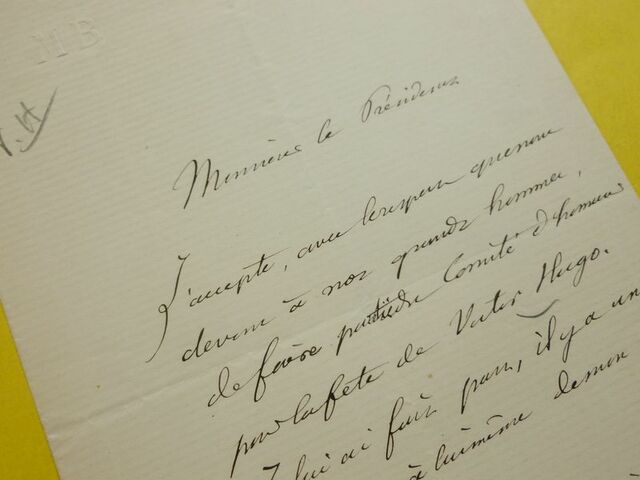 HB
V.H
Monsieur le Président
J'accepte, avec le respect que nous
devons à nos grands hommes,
de faire partie du Comité d'honneur
pour la fête de Victor Hugo.
Je lui ai fait part, il y a un
à lui même de mon